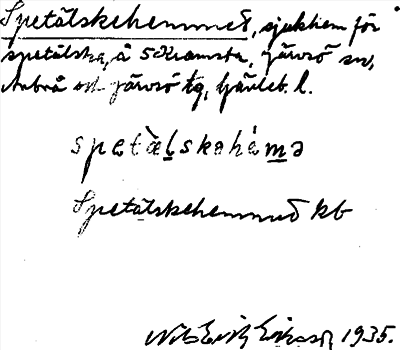 Spetälskehemmet, sjukhem för
spetälska, å S. Kramsta, Järvsö sn,
Arbrå och Järvsö tg, Gävleb. l.
spetàl̲skahém̲ə
Spetälskehemmed kb
Nils Erik Eriksson 1935.